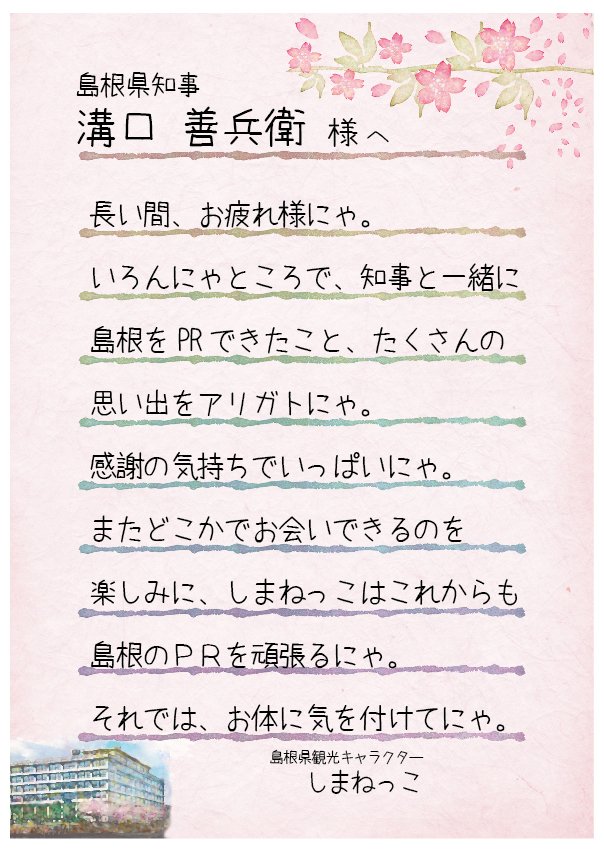 島根県知事
溝口 善兵衛 様へ
長い間、お疲れ様にゃ。
いろんにゃところで、知事と一緒に
島根をPRできたこと、たくさんの
思い出をアリガトにゃ。
感謝の気持ちでいっぱいにゃ。
またどこかでお会いできるのを
楽しみに、しまねっこはこれからも
島根のＰＲを頑張るにゃ。
それでは、お体に気を付けてにゃ。
島根県観光キャラクター
しまねっこ